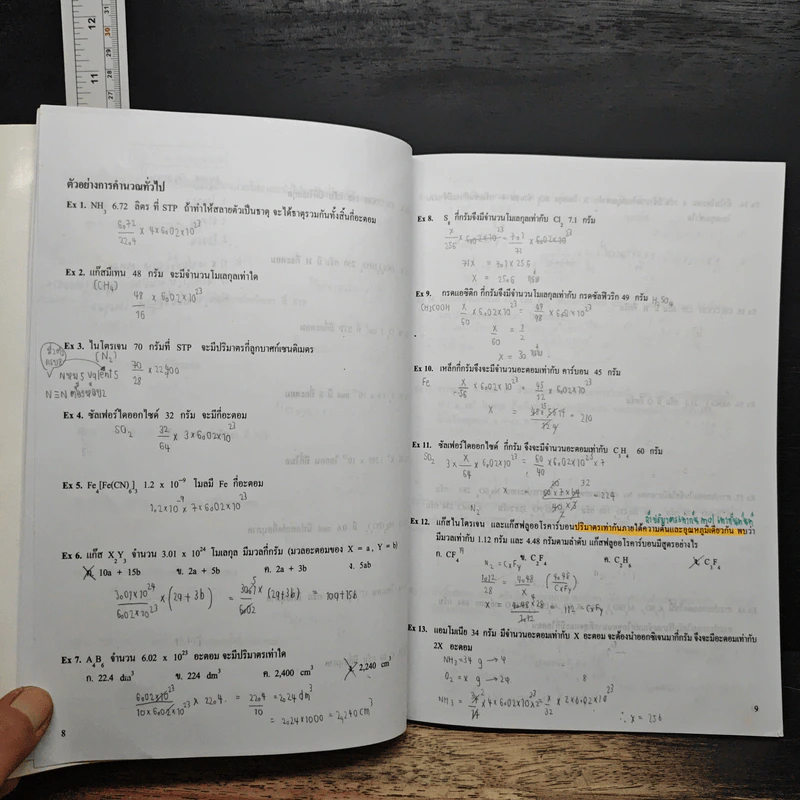 12
11
31
30
29
28
27
ตัวอย่างการคำนวณทั่วไป
Ex 1. NH3 6.72 ลิตร ที่ STP ถ้าทำให้สลายตัวเป็นธาตุ จะได้ธาตุรวมกันทั้งสิ้นกี่อะตอม
6.72/22.4 x 4 x 6.02x10^23
Ex 2. แก๊สมีเทน 48 กรัม จะมีจำนวนโมเลกุลเท่าใด
(CH4)
48/16 x 6.02x10^23
Ex 3. ไนโตรเจน 70 กรัมที่ STP จะมีปริมาตรกี่ลูกบาศก์เซนติเมตร
(N2)
70/28 x 22,400
N ≡ N
Ex 4. ซัลเฟอร์ไดออกไซด์ 32 กรัม จะมีกี่อะตอม
SO2 32/64 x 3 x 6.02x10^23
Ex 5. Fe4[Fe(CN)6]3 1.2 x 10^-9 โมลมี Fe กี่อะตอม
1.2x10^-9 x 7 x 6.02x10^23
Ex 6. แก๊ส X2Y3 จำนวน 3.01 x 10^24 โมเลกุล มีมวลกี่กรัม (มวลอะตอมของ X = a, Y = b)
ก. 10a + 15b ข. 2a + 5b ค. 2a + 3b ง. 5ab
3.01x10^24/6.02x10^23 x (2a + 3b) = 30.1/6.02 x (2a+3b) = 10a+15b
Ex 7. A4B6 จำนวน 6.02 x 10^23 อะตอม จะมีปริมาตรเท่าใด
ก. 22.4 dm3 ข. 224 dm3 ค. 2,400 cm3 ง. 2,240 cm3
6.02x10^23/10x6.02x10^23 x 22.4 = 22.4/10 = 2.24 dm3
= 2.24x1000 = 2,240 cm3
8
Ex 8. S8 กี่กรัมจึงมีจำนวนโมเลกุลเท่ากับ Cl2 7.1 กรัม
X/256 x 6.02x10^23 = 7.1/71 x 6.02x10^23
71X = 7.1 x 256
X = 25.6 กรัม
Ex 9. กรดแอซิติก กี่กรัมจึงมีจำนวนโมเลกุลเท่ากับ กรดซัลฟิวริก 49 กรัม H2SO4
CH3COOH X/60 x 6.02x10^23 = 49/98 x 6.02x10^23
X/60 = 1/2
X = 30 กรัม
Ex 10. เหล็กกี่กรัมจึงจะมีจำนวนอะตอมเท่ากับ คาร์บอน 45 กรัม
Fe X/56 x 6.02x10^23 = 45/12 x 6.02x10^23
= 210
Ex 11. ซัลเฟอร์ไดออกไซด์ กี่กรัม จึงจะมีจำนวนอะตอมเท่ากับ C3H4 60 กรัม
SO2 3 x X/64 x 6.02x10^23 = 60/40 x 6.02x10^23 x 7
= 224
N2
Ex 12. แก๊สไนโตรเจน และแก๊สฟลูออโรคาร์บอนปริมาตรเท่ากันภายใต้ความดันและอุณหภูมิเดียวกัน พบว่า
มีมวลเท่ากับ 1.12 กรัม และ 4.48 กรัมตามลำดับ แก๊สฟลูออโรคาร์บอนมีสูตรอย่างไร
ก. CF4 ข. C2F4 ค. C2H6 ง. C3F4
N2 = CxFy
1.12/28 = 4.48/X (4.48/CxFy)
X = 4.48x28/1.12 = 112 = CxFy
Ex 13. แอมโมเนีย 34 กรัม มีจำนวนอะตอมเท่ากับ X อะตอม จะต้องนำออกซิเจนมากี่กรัม จึงจะมีอะตอมเท่ากับ
2X อะตอม
NH3 = 34 g → 4
O2 = x g → 24 8
∴ x = 256
9